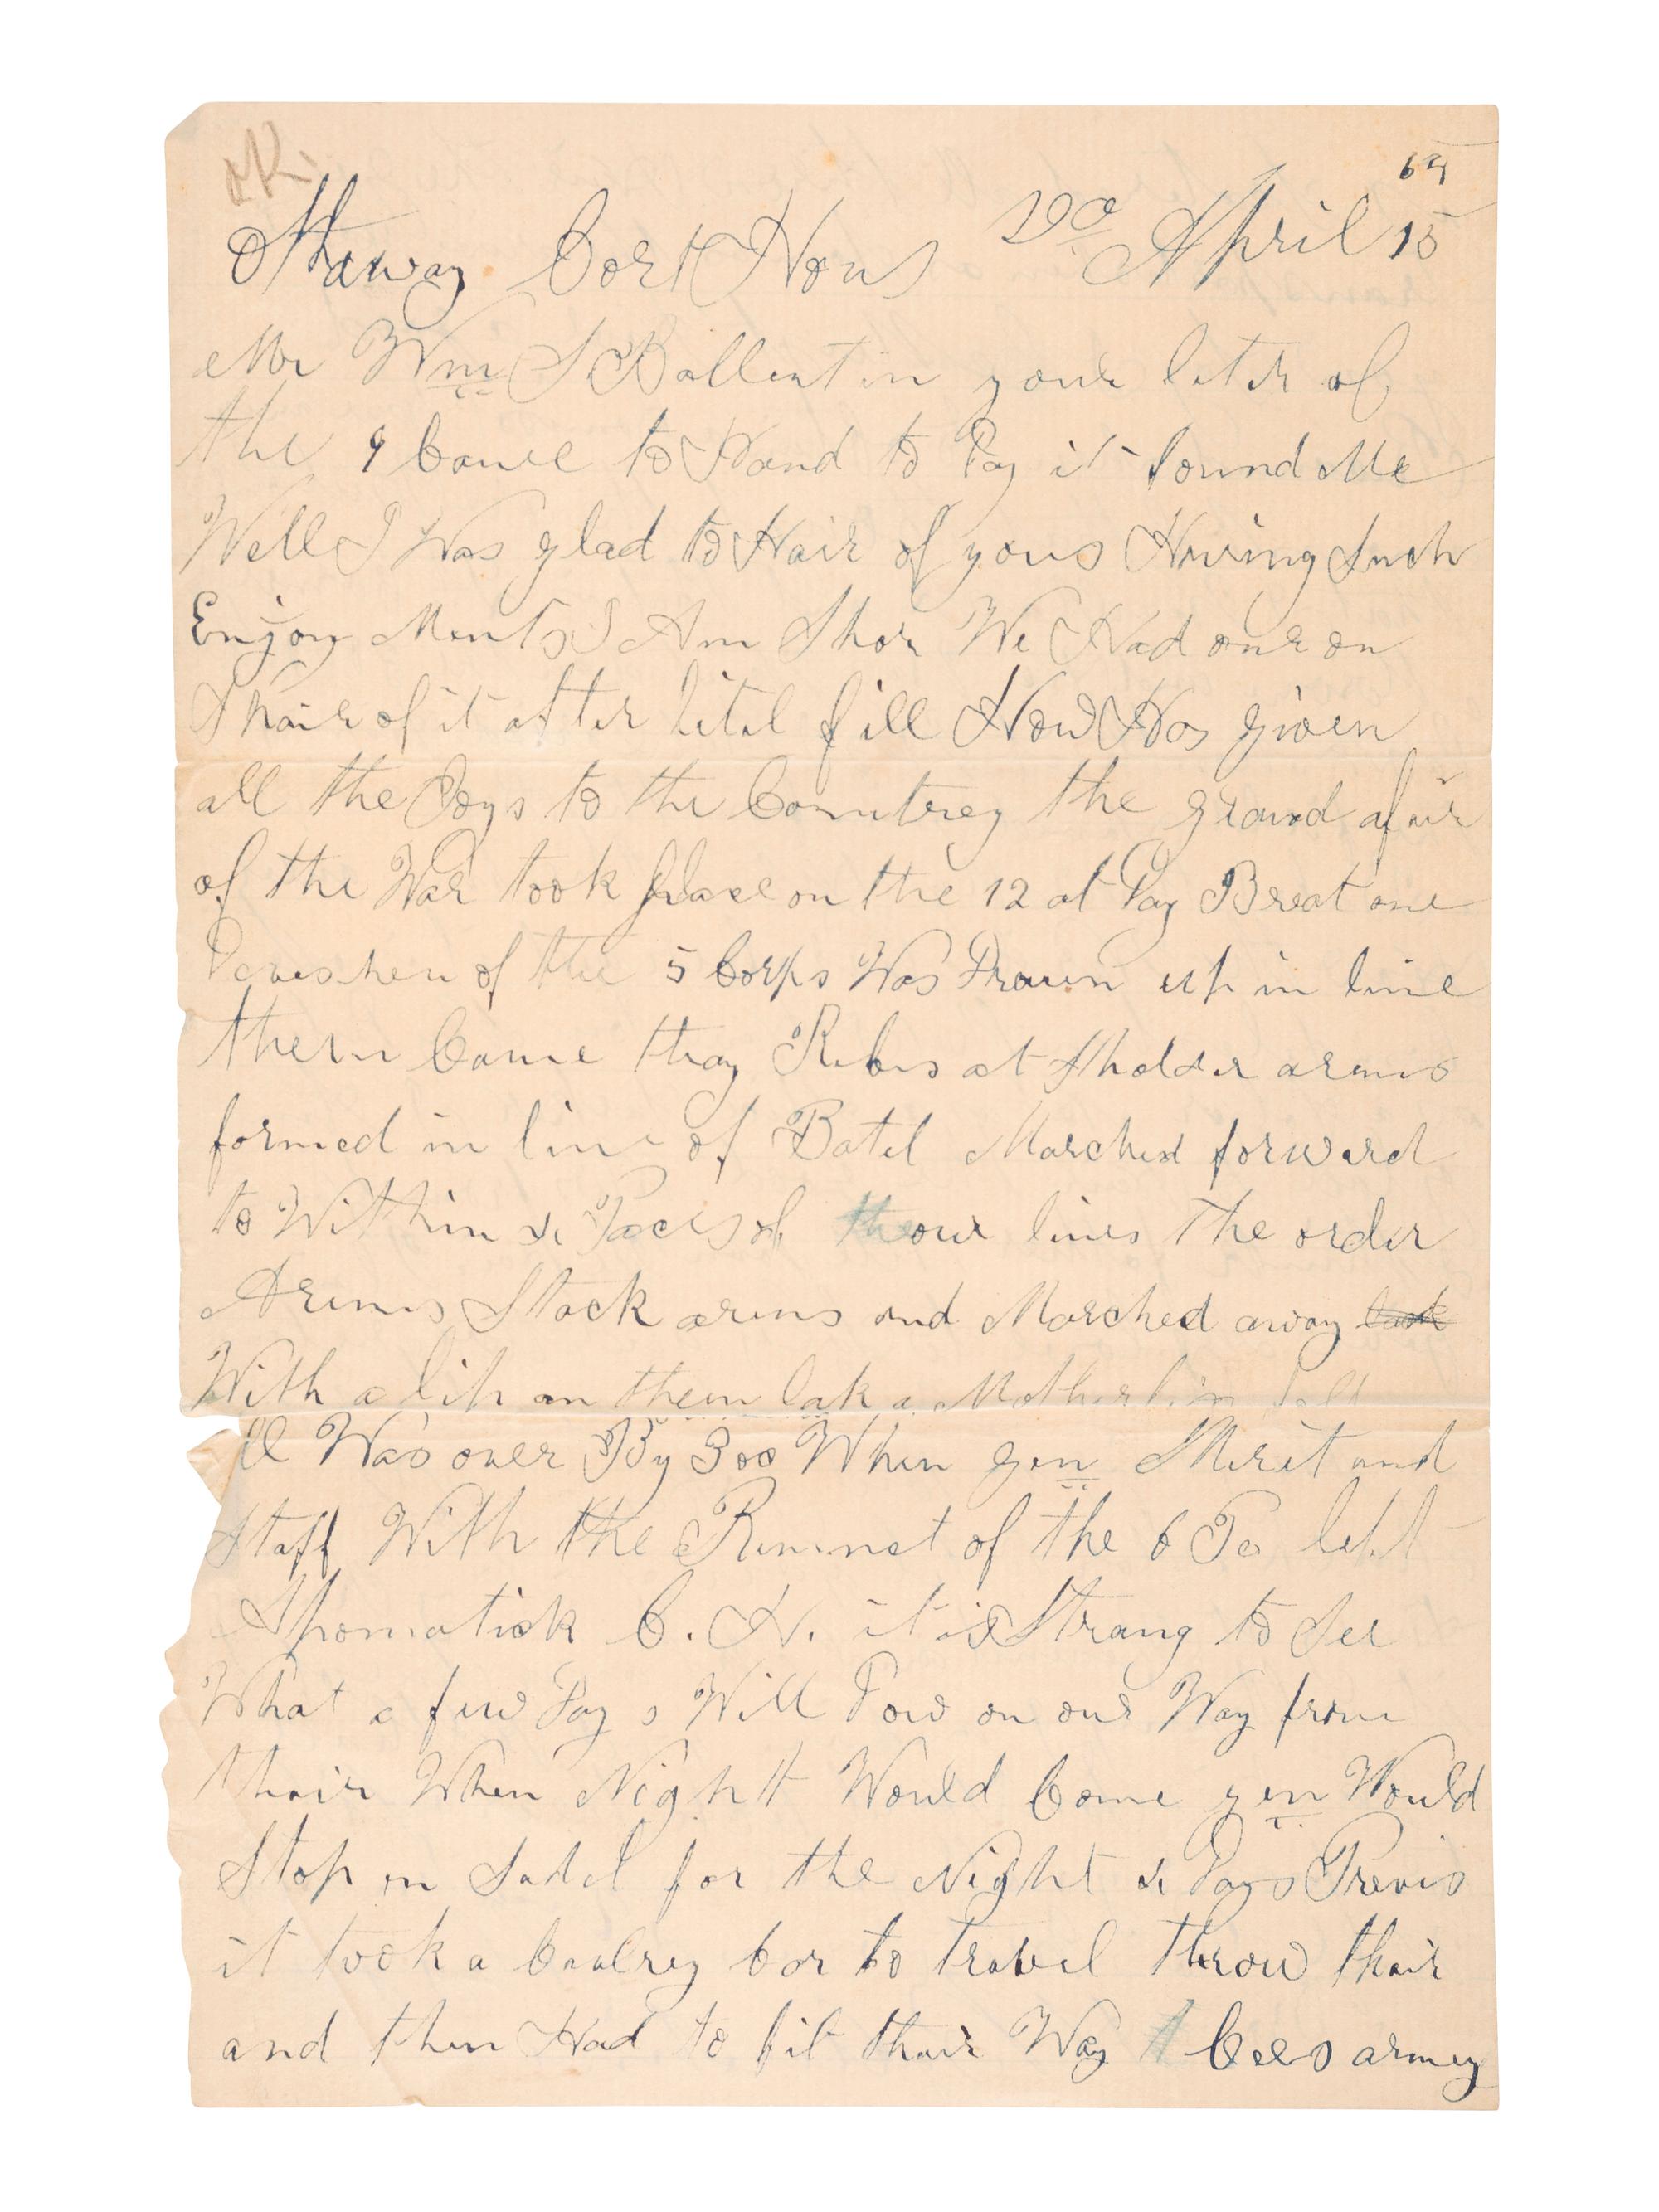 65
Cort Hous April 15
Mr Wm S Ballentin your leter of
the 9 Came to Hand to Day it found Me
Well I Was glad to Hair of yous Having Such
Enjoy Ments I Am Shor We Had our on
Shair of it after litel fill Now Has given
all the Joys to the Countrey the grand afair
of the War took place on the 12 at Day Breat one
Deveshen of the 5 Corps Was Drawn up in line
then Came thay Rebes at Sholder arems
formed in line of Batel Marched forward
to Within Paces of our lines the order
Arems Stack arms and Marched away
With a lip on them lak a Motherlin
ll Was over By 300 When gen Merit and
Staff With the Remnet of the 6 Pa left
Apomatick C. H. it is Strang to See
What a few Day s Will Dow on our Way from
thair When Night Would Come gen Would
Stop in Sadel for the Night Days Previs
it took a Cavalrey Cor to travel throw thair
and then Had to fit thair Way Lees armey